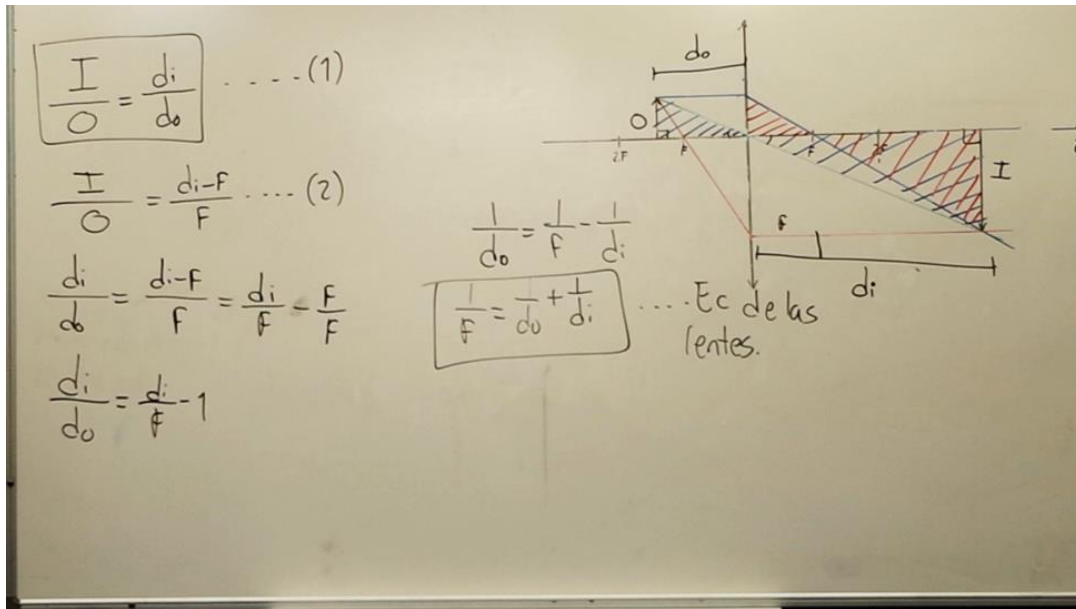 I/O = di/do ....(1)
I/O = di-F/F ....(2)
di/do = di-F/F = di/F - F/F
di/do = di/F - 1
1/do = 1/F - 1/di
1/F = 1/do + 1/di ....Ec de las
lentes.
do
O
2F
F
F
2F
I
F
di